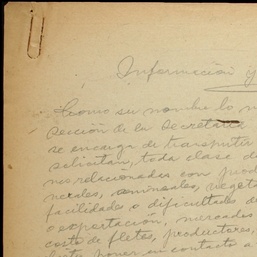 Información y
Como su nombre lo
sección de la Secretaría
se encarga de transmitir
solicitan, toda clase d
relacionados con prod
minerales, vegeta
facilidades o dificultades d
o exportación, mercados
costo de fletes, productores,
poner en contacto a